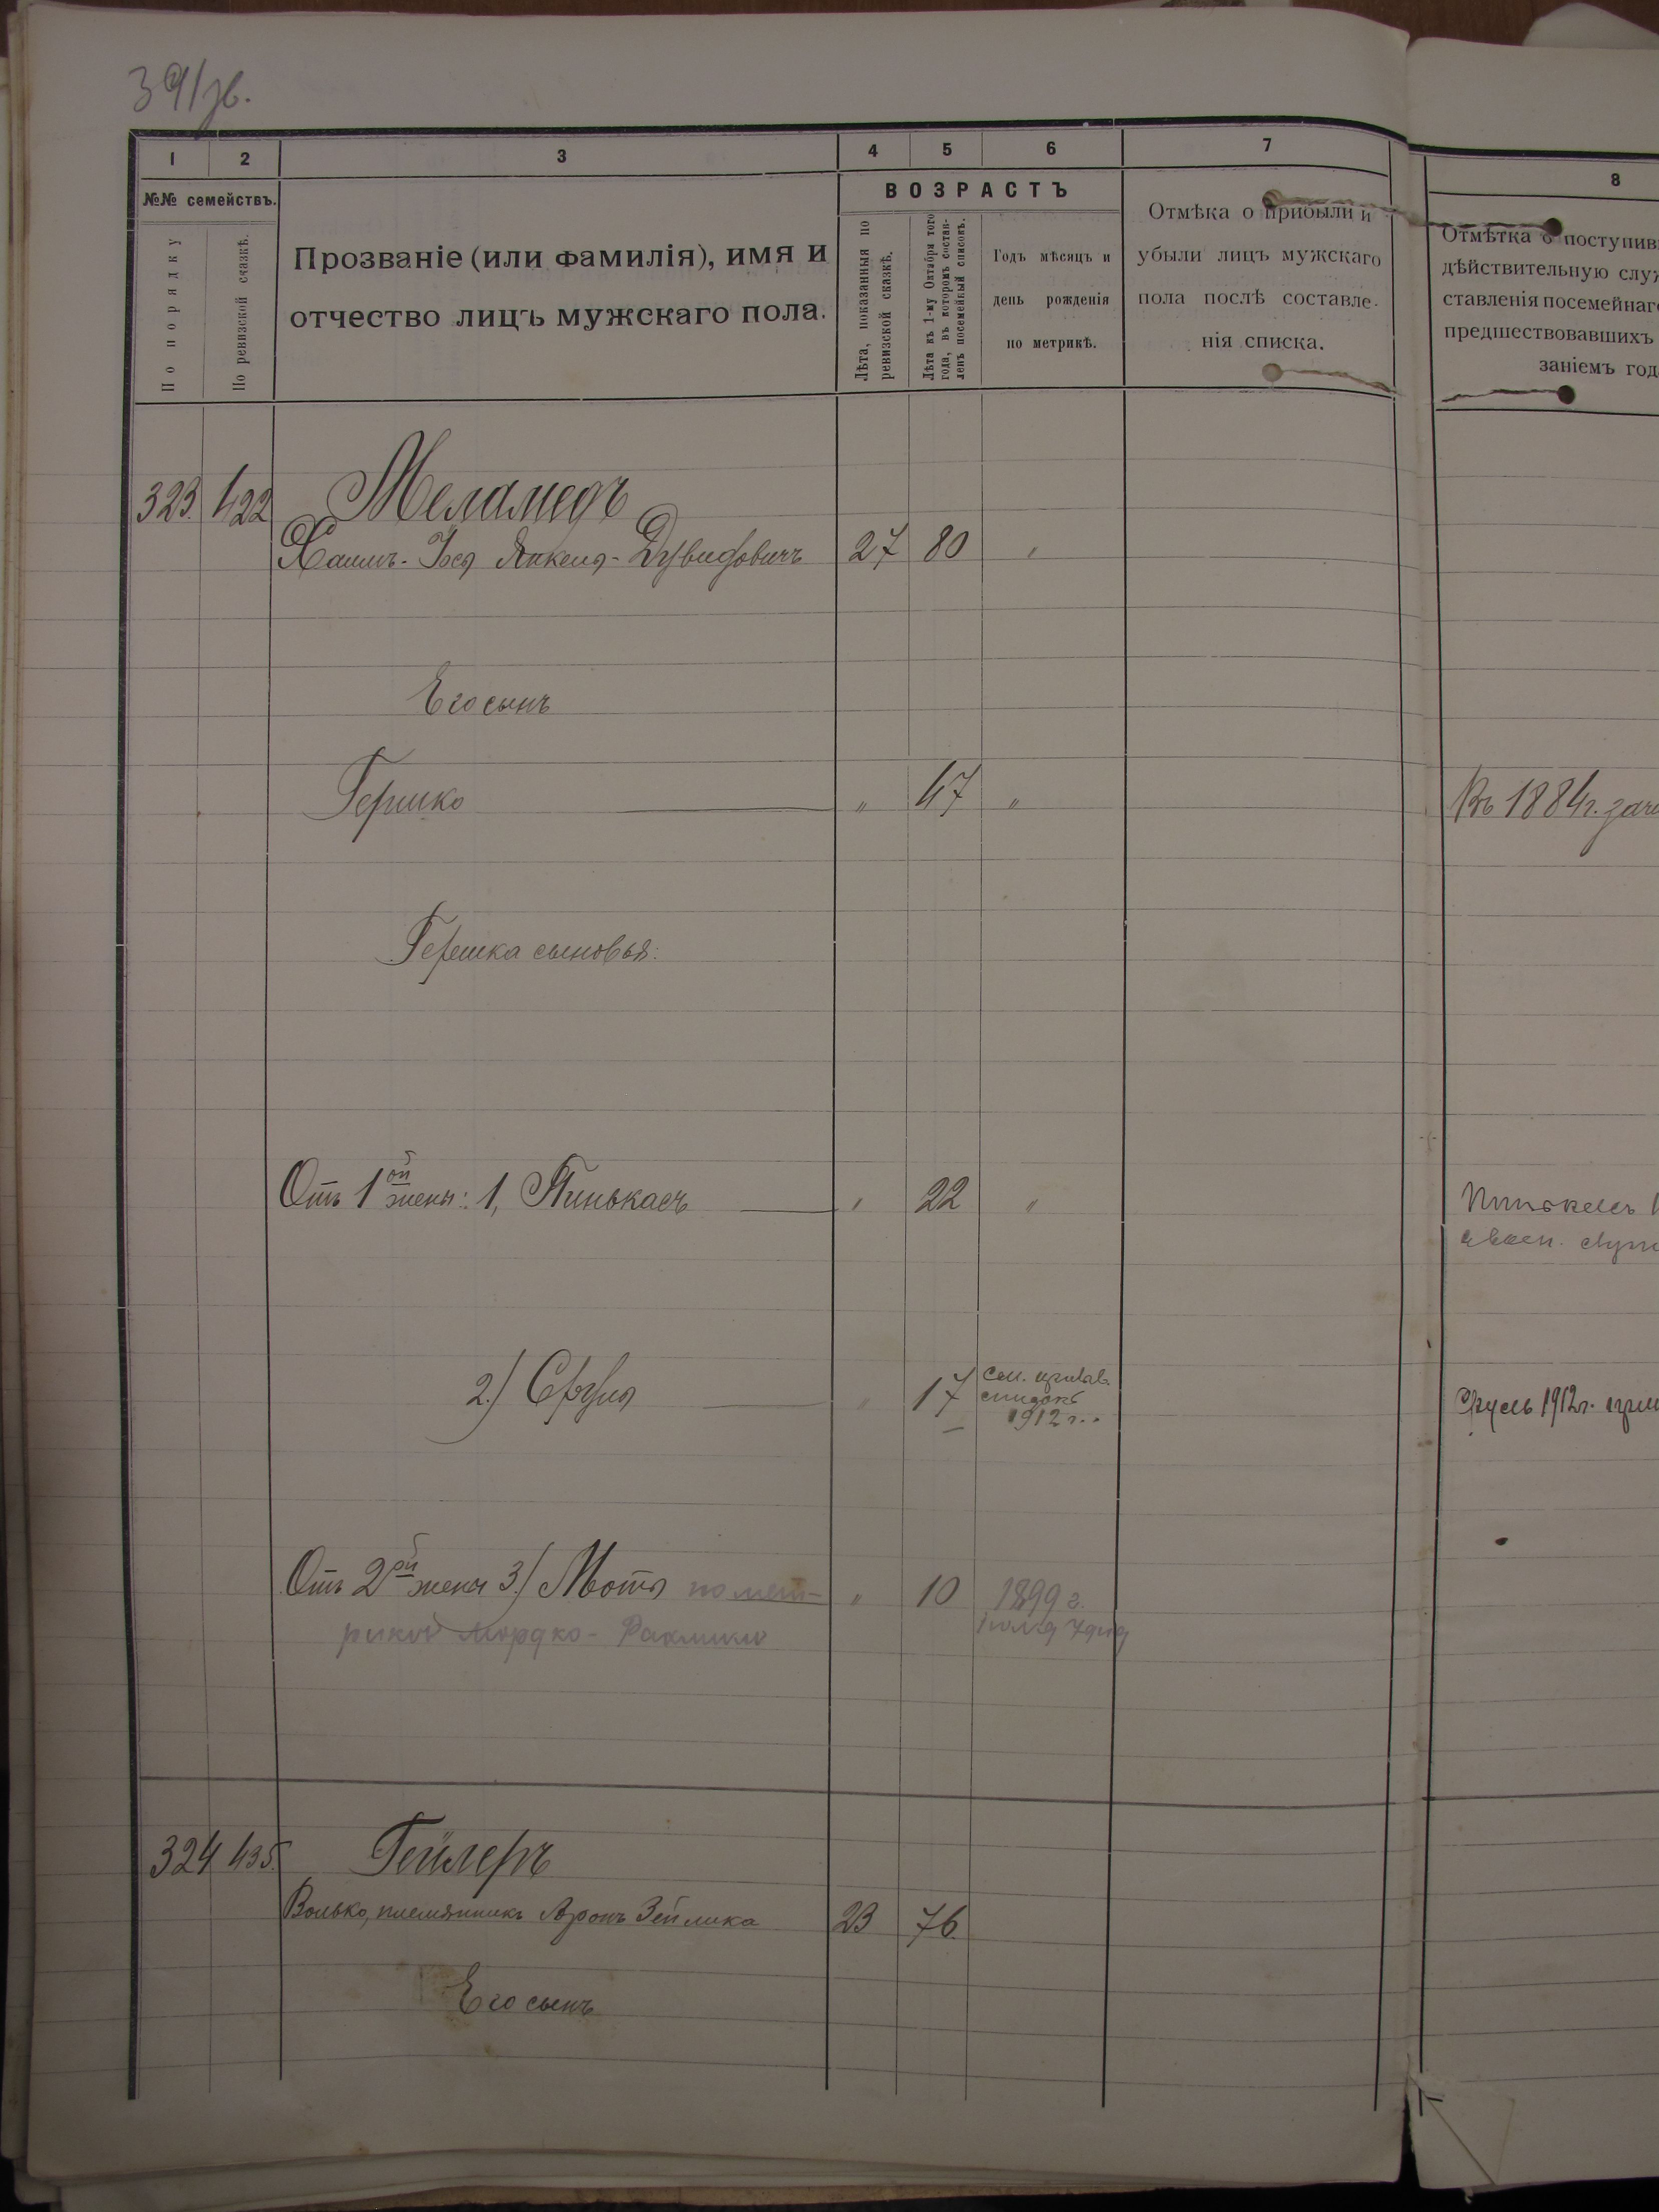 391/зв.
1 2 3 4 5 6 7 8
№№ семействъ.
По порядку
По ревизской сказкѣ.
Прозваніе (или фамилія), имя и
отчество лицъ мужскаго пола.
ВОЗРАСТЪ
Лѣта, показанныя по
ревизской сказкѣ.
Лѣта къ 1-му Октября того
года, въ которомъ состав-
ленъ посемейный списокъ.
Годъ мѣсяцъ и
день рожденія
по метрикѣ.
Отмѣка о прибыли и
убыли лицъ мужскаго
пола послѣ составле-
нія списка.
Отмѣтка о поступив
дѣйствительную служ
ставленія посемейнаго
предшествовавшихъ
заніемъ год
323. 422 Меламедъ
Хаимъ-Іося Янкеля-Дувидовичъ 27 80 "
Его сынъ
Гершко " 47 "
Въ 1884г. зач
Гершка сыновья:
Отъ 1ой жены: 1, Пинькасъ " 22 "
Пинькасъ
2.) Сруля " 17
1912 г.
Сруль 1912г.
Отъ 2ой жены 3.) Мотя по мет- " 10 1899 г.
рикѣ Мордко-Рахмиль
324 435. Гейлеръ
Волько, племянникъ Аронъ Зейлика 23 76.
Его сынъ